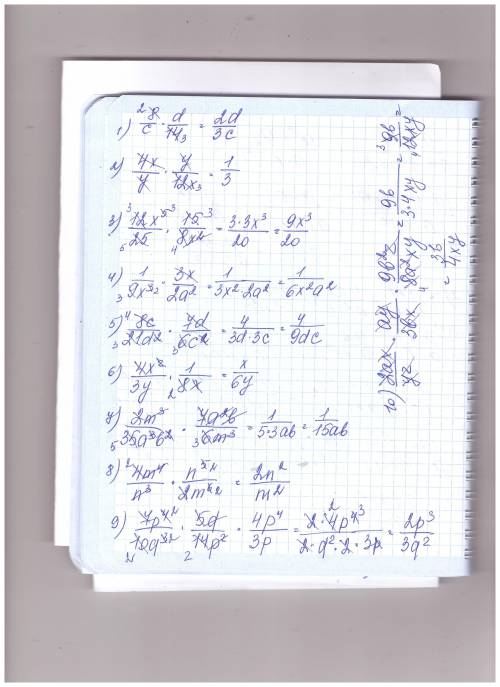 1) 8/c · d/14 3 = 2d/3c
2) 4x/y · y/12x 3 = 1/3
3) 12x⁵/25 · 15/8x² = 3·3x³/20 = 9x³/20
4) 1/9x³ · 3x/2a² = 1/3x²·2a² = 1/6x²a²
5) 8c/21d² · 7d/6c² = 4/3d·3c = 4/9dc
6) 4x²/3y · 1/8x = x/6y
7) 2m³/35a³b² · 7a²b/6m³ = 1/5·3ab = 1/15ab
8) 4m⁴/n³ · n⁵/2m⁴ = 2n²/m²
9) 7p⁴/10q³ · 5q/14p² · 4p⁴/3p = 2·4p⁴/2·q²·2·3p = 2p³/3q²
10) 2ax/yz · ay/3bx · 9b²z/8a²xy = 9b/3·4xy = 9b/12xy =
= 3b/4xy